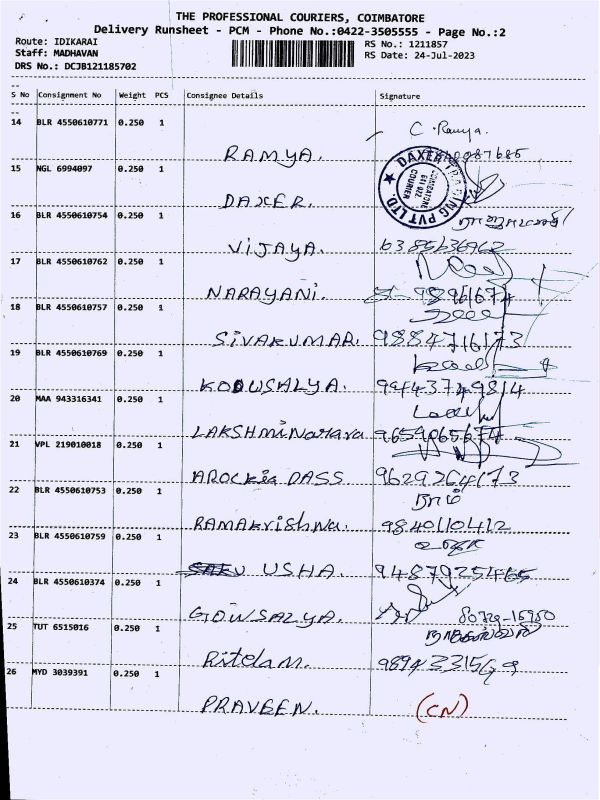 THE PROFESSIONAL COURIERS, COIMBATORE
Delivery Runsheet - PCM - Phone No.:0422-3505555 - Page No.:2
Route: IDIKARAI
RS No.: 1211857
Staff: MADHAVAN
RS Date: 24-Jul-2023
DRS No.: DCJB121185702
S No Consignment No Weight PCS Consignee Details Signature
14 BLR 4550610771 0.250 1
C. Ramya.
RAMYA.
15 NGL 6994097 0.250 1
DAXER TRADING PVT LTD.
COIMBATORE
641 022
COURIER
DAXER.
16 BLR 4550610754 0.250 1
VIJAYA. 6385636962
17 BLR 4550610762 0.250 1
NARAYANI.
18 BLR 4550610757 0.250 1
SIVAKUMAR. 9884716173
19 BLR 4550610769 0.250 1
KOUSALYA. 9944379814
20 MAA 943316341 0.250 1
LAKSHMINarara 9659065674
21 VPL 219010018 0.250 1
AROCKia DASS 9629264173
22 BLR 4550610753 0.250 1
RAMAKrishna. 9840110412
23 BLR 4550610759 0.250 1
USHA.
24 BLR 4550610374 0.250 1
GOWSALYA.
25 TUT 6515016 0.250 1
26 MYD 3039391 0.250 1
PRAVEEN. (CN)